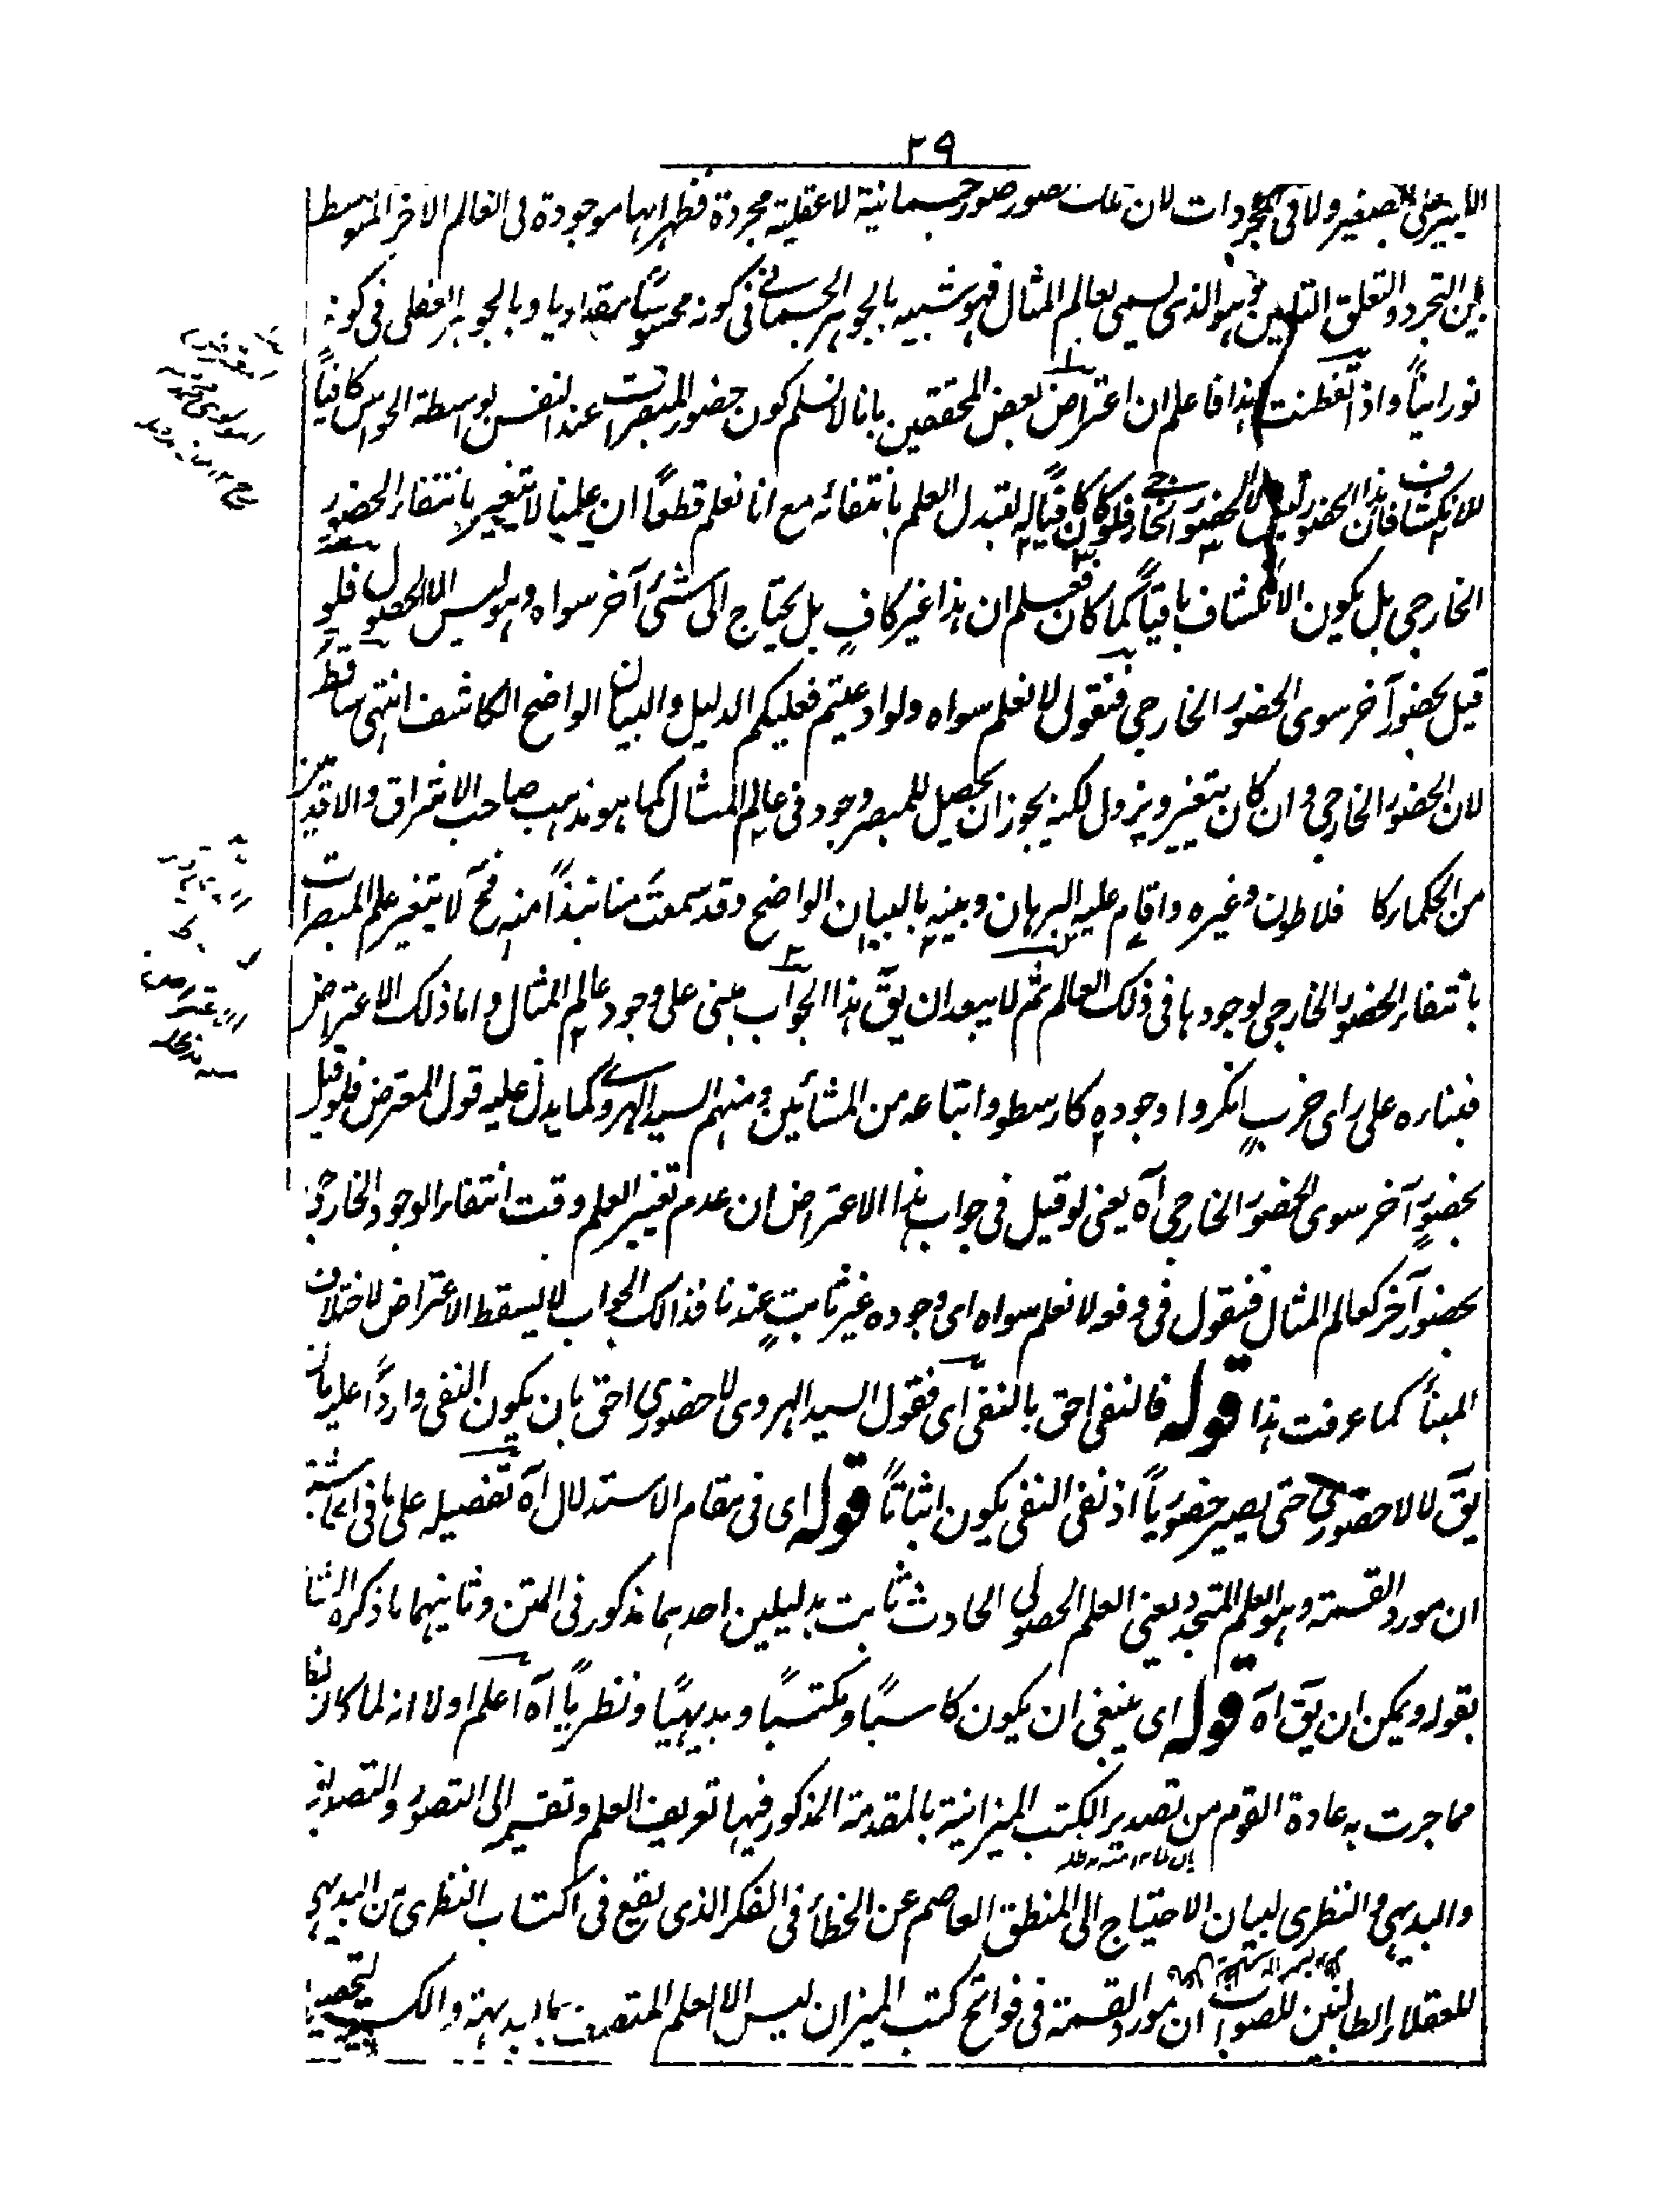 ٢٩
الكبير على الصغير ولا في المجردات لان تلك الصور صور جسمانية لا عقلية مجردة فظهر انها موجودة في العالم الآخر المتوسط
بين التجرد والتعلق التامين وهو الذى يسمى بعالم المثال فهو شبيه بالجوهر الجسماني في كونه محسوسًا مقداريا وبالجوهر العقلى فى كونه
نورانيًا واذا تفطنت هذا فاعلم ان اعتراض بعض المحققين بانا لا نسلم كون حضور المبصرات عند النفس بواسطة الحواس كافيًا
للانكشاف فان هذا الحضور ليس الا الحضور الخارجى فلو كان كافيًا له لتبدل العلم بانتفائه مع انا نعلم قطعًا ان علمنا لا يتغير بانتفاء الحضور
الخارجى بل يكون الانكشاف باقيًا كما كان فعلم ان هذا غير كافٍ بل يحتاج الى شئ آخر سواه وهو ليس الا الحصول فلو
قيل بحضور آخر سوى الحضور الخارجى فنقول لا نعلم سواه ولو ادعيتم فعليكم الدليل والبيان الواضح الكاشف انتهى ساقط
لان الحضور الخارجى وان كان يتغير ويزول لكنه يجوز ان يحصل للمبصر وجود فى عالم المثال كما هو مذهب صاحب الاشراق والاقدمين
من الحكماء كا فلاطون وغيره واقام عليه البرهان وبينه بالبيان الواضح وقد سمعت منا نبذًا منه فح لا يتغير علم المبصرات
بانتفاء الحضور الخارجى لوجودها فى ذلك العالم ثم لا يبعد ان يقَ هذا الجواب مبنى على وجود عالم المثال واما ذلك الاعتراض
فبناءه على راى حزبٍ انكروا وجوده كارسطو واتباعه من المشائين ومنهم السيد الهروى كما يدل عليه قول المعترض فلو قيل
بحضورٍ آخر سوى الحضور الخارجى آه يعنى لو قيل فى جواب هذا الاعتراض ان عدم تغير العلم وقت انتفاء الوجود الخارجى
بحضور آخر كعالم المثال فنقول فى دفعه لا نعلم سواه اى وجوده غير ثابتٍ عندنا فذالك الجواب لا يسقط الاعتراض لاختلاف
المبنا كما عرفت هذا قوله فالنفى احق بالنفى اى فقول السيد الهروى لا حضورى احق بان يكون النفى واردًا عليه بان
يقَ لا لا حضورى حتى يصير حضوريًا اذ نفى النفى يكون اثباتًا قوله اى فى مقام الاستدلال آه تفصيله على ما فى الحاشية
ان مورد القسمة وهو العلم المتجدد يعنى العلم الحصولى الحادث ثابت بدليلين احدهما مذكور فى المتن وثانيهما ما ذكره الشا
بقوله ويمكن ان يقَ آه قوله اى ينبغى ان يكون كاسبًا ومكتسبًا وبديهيًا ونظريًا آه اعلم اولا انه لما كان
مما جرت به عادة القوم من تصدير الكتب الميزانية بالمقدمة المذكور فيها تعريف العلم وتقسيمه الى التصور والتصديق
والبديهى والنظرى لبيان الاحتياج الى المنطق العاصم عن الخطأ فى الفكر الذى يقع فى اكتساب النظرى من البديهى
للعقلاء الطالبين للصواب ان مورد القسمة فى فواتح كتب الميزان ليس الا العلم المتصف بالبديهة والكسبية